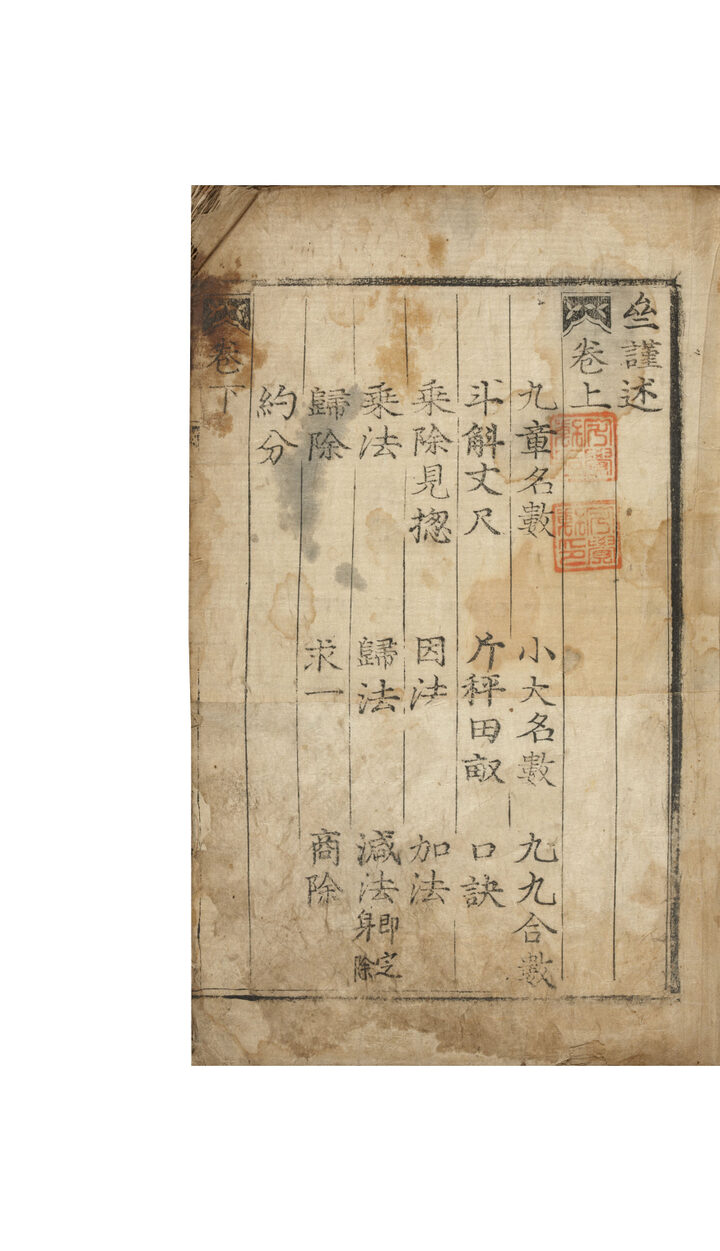 謹述
卷上
九章名數 小大名數 九九合數
斗斛丈尺 斤秤田畝 口訣
乘除見揔 因法 加法
乘法 歸法 減法即定身除
歸除 求一 商除
約分
卷下